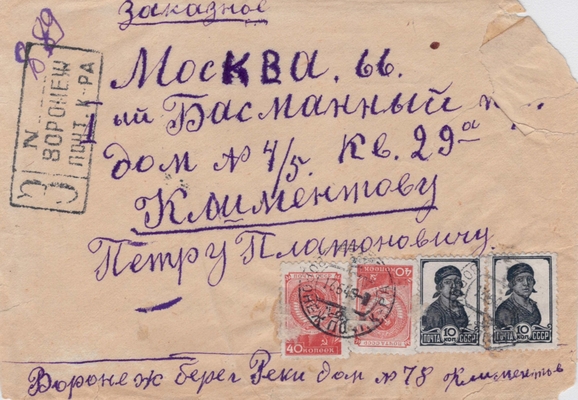 Заказное
N
ВОРОНЕЖ
ПОЧТ. К-РА
Москва. 66.
ый Басманный п
дом № 4/5. Кв. 29а
Климентову
Петру Платоновичу.
40 КОПЕЕК
40 КОПЕЕК
ПОЧТА 10 КОП. СССР
ПОЧТА 10 КОП. СССР
Воронеж берег Реки дом № 78 Климентов